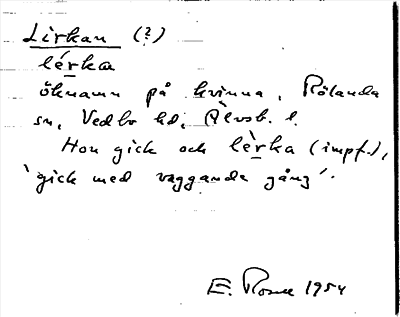 Lirkan (?)
lérka
öknamn på kvinna, Rölanda
sn, Vedbo hd, Älvsb. l.
Hon gick och lèrka (impf.),
'gick med vaggande gång'.
E. 1954